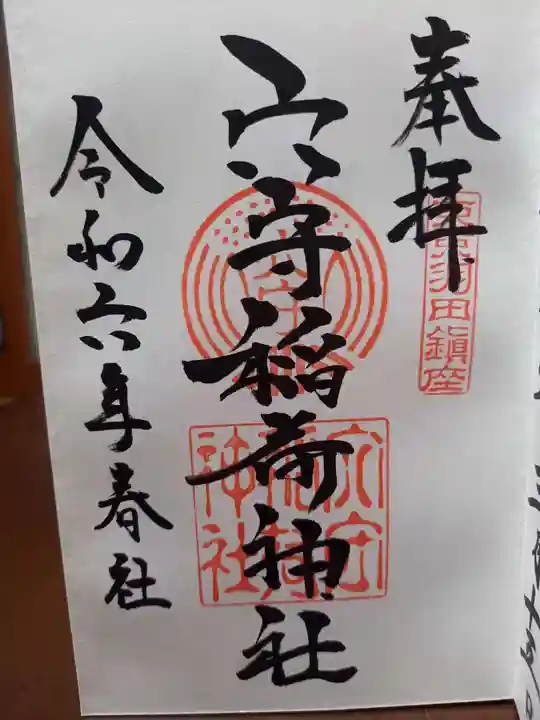 奉拝
東京羽田鎮座
穴守稲荷神社
穴守稲荷神社
令和六年春社